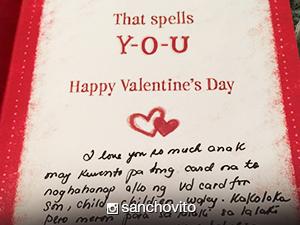 That spells
Y-O-U
Happy Valentine's Day
I love you so much anak
may kuwento pa tong card na to
naghahanap ako ng Vd card for
son, child, children, walay. Kakaloka
pero meron para sa lalaki sa lalaki
sanchovito